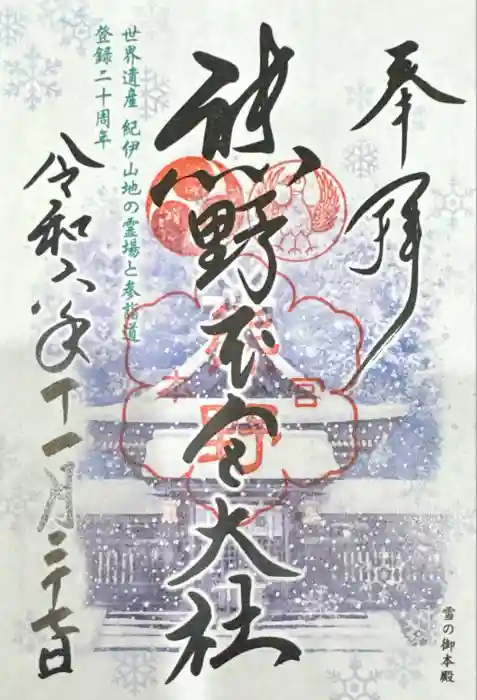 奉拝
雪の御本殿
熊野本宮大社
熊野
本宮
世界遺産 紀伊山地の霊場と参詣道
登録二十周年
令和六年十一月二十七日